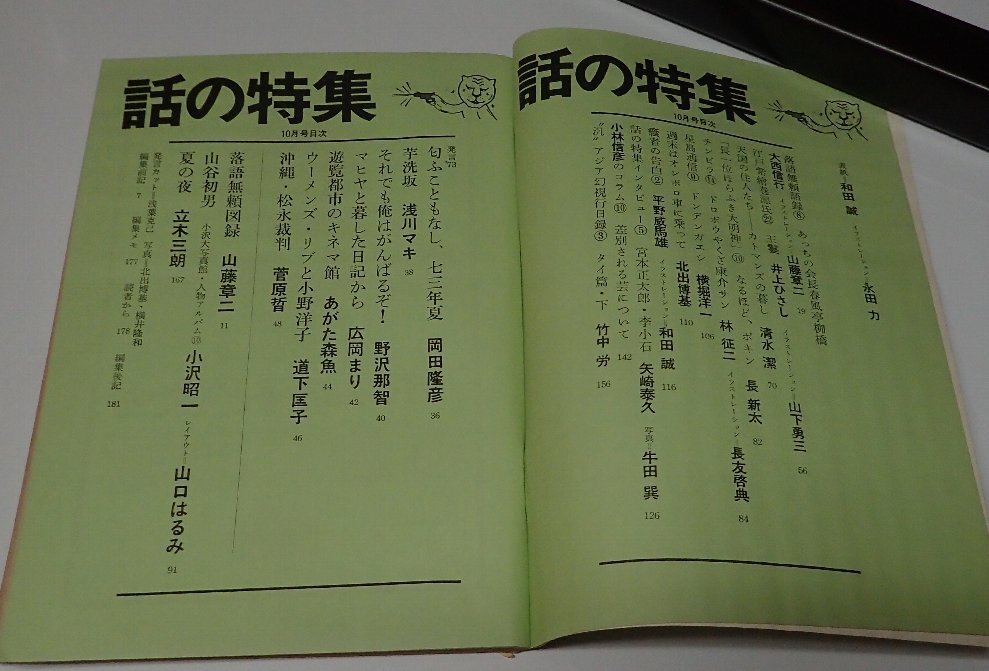 話の特集
10月号目次
表紙=和田 誠 イラストレーション=永田 力
落語無頼語録⑥ あっちの会長春風亭柳橋
大西信行 イラストレーション=山藤章二 19
江戸 井上ひさし イラストレーション=山下勇三 56
天国の住人たち—カトマンズの暮し 清水 潔 70
なるほど、ボキン 長 新太 82
チンピラ⑪ ドロボウやくざ康介サン 林 征二 イラストレーション=長友啓典 84
星島通信⑨ ドンデンガエシ 横堀洋一 106
週末はオンボロ車に乗って 北出博基 110
癈者の告白② 平野威馬雄 イラストレーション=和田 誠 116
話の特集インタビュー⑤ 宮本正太郎・李小石 矢崎泰久 写真=牛田 巽 126
小林信彦のコラム⑩ 差別される芸について 142
アジア幻視行日録③ タイ篇・下 竹中 労 156
話の特集
10月号目次
発言'73
匂ふこともなし、七三年夏 岡田隆彦 36
芋洗坂 浅川マキ 38
それでも俺はがんばるぞ! 野沢那智 40
マヒヤと暮した日記から 広岡まり 42
遊覧都市のキネマ館 あがた森魚 44
ウーメンズ・リブと小野洋子 道下匡子 46
沖縄・松永裁判 菅原晢 48
落語無頼図録 山藤章二 11
山谷初男 小沢大写真館・人物アルバム⑩ 小沢昭一 レイアウト=山口はるみ 91
夏の夜 立木三朗 167
発言カット=浅葉克己 写真=北出博基・横井隆和
編集前記 7 編集メモ 177 読者から 178 編集後記 181